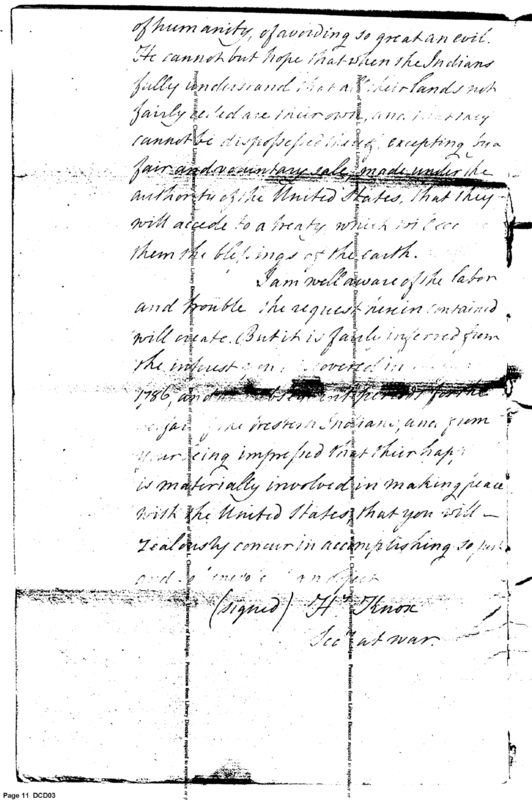 of humanity, of avoiding so great an evil.
He cannot but hope that when the Indians
fully understand that all their lands not
fairly ceded are their own, and that they
cannot be dispossessed thereof excepting by a
fair and voluntary sale, made under the
authority of the United States, that they
will accede to a treaty which will
them the blessings of the earth.
I am well aware of the labor
and trouble the request herein contained
will create. But it is fairly inferred from
the interest in
1786, and for the
of the Western Indians, and from
your being impressed that their
is materially involved in making peace
with the United States, that you will —
Zealously concur in accomplishing so just
and an object
(signed) Hy Knox
Secy at war.
Library of William L. Clements, University of Michigan. Permission from Library Director required to reproduce or
Page 11 DCD03